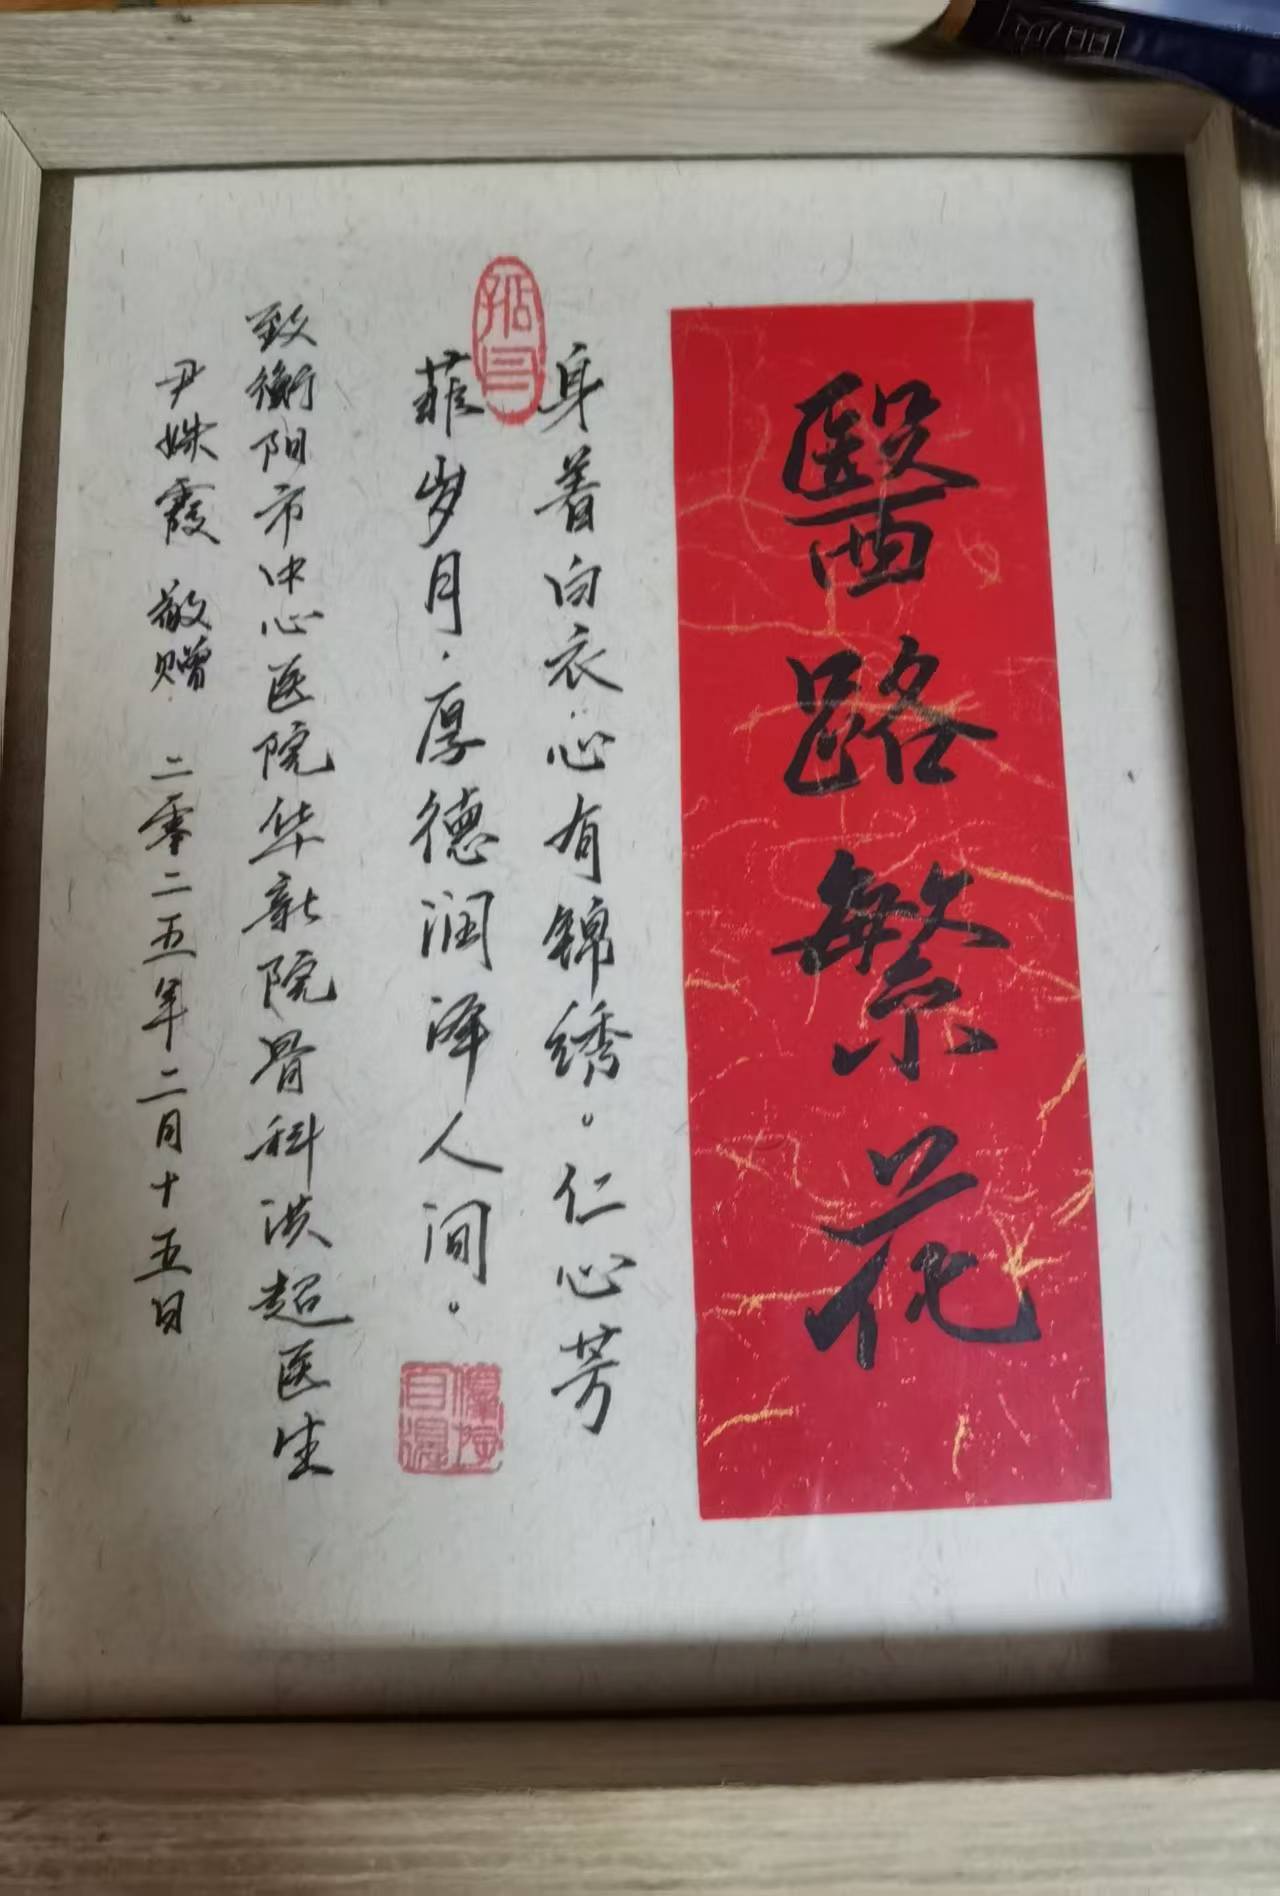 醫路繁花
身着白衣心有锦绣。仁心芳
菲岁月.厚德润泽人间。
致衡阳市中心医院华新院骨科洪超医生
尹姝霞 敬赠 二零二五年二月十五日
品质